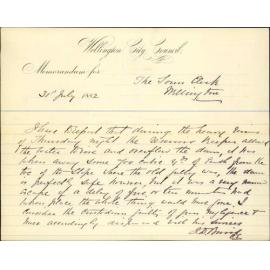 Wellington City Council.
Memorandum for
The Town Clerk
31st July 1882
Wellington
I have to report that during the heavy rains
on Thursday night the Reservoir Keeper allowed
the water to rise and overflow the dam, it has
away some 400 cubic yds of earth from the
toe of the slope where the old pulley was, the dam
is perfectly safe however but it was a very narrow
escape if a delay of five or ten minutes had
taken place the whole thing would have gone. I
consider the Custodian guilty of gross negligence &
have accordingly dispensed with his services